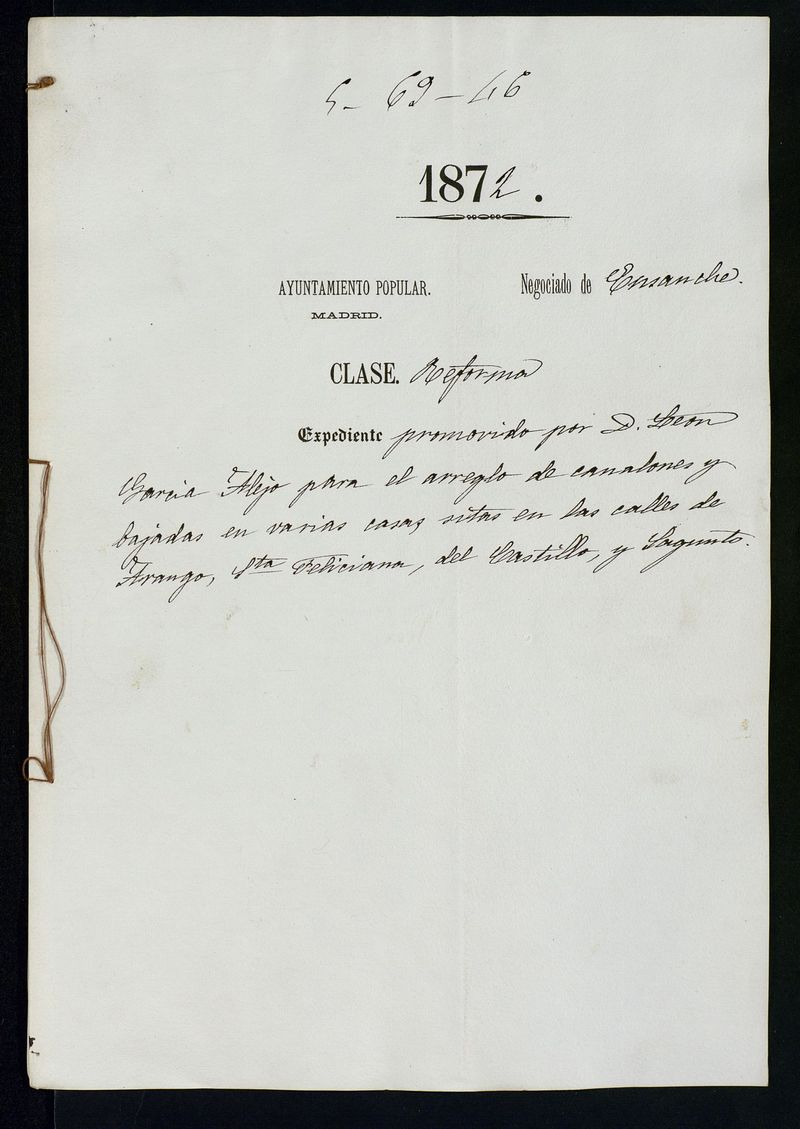 5-69-46
1872.
AYUNTAMIENTO POPULAR.
MADRID.
Negociado de Ensanche.
CLASE. Reforma
Expediente promovido por D. Leon
Garcia Alejo para el arreglo de canalones y
bajadas en varias casas sitas en las calles de
Arango, Sta Feliciana, del Castillo, y Sagunto.